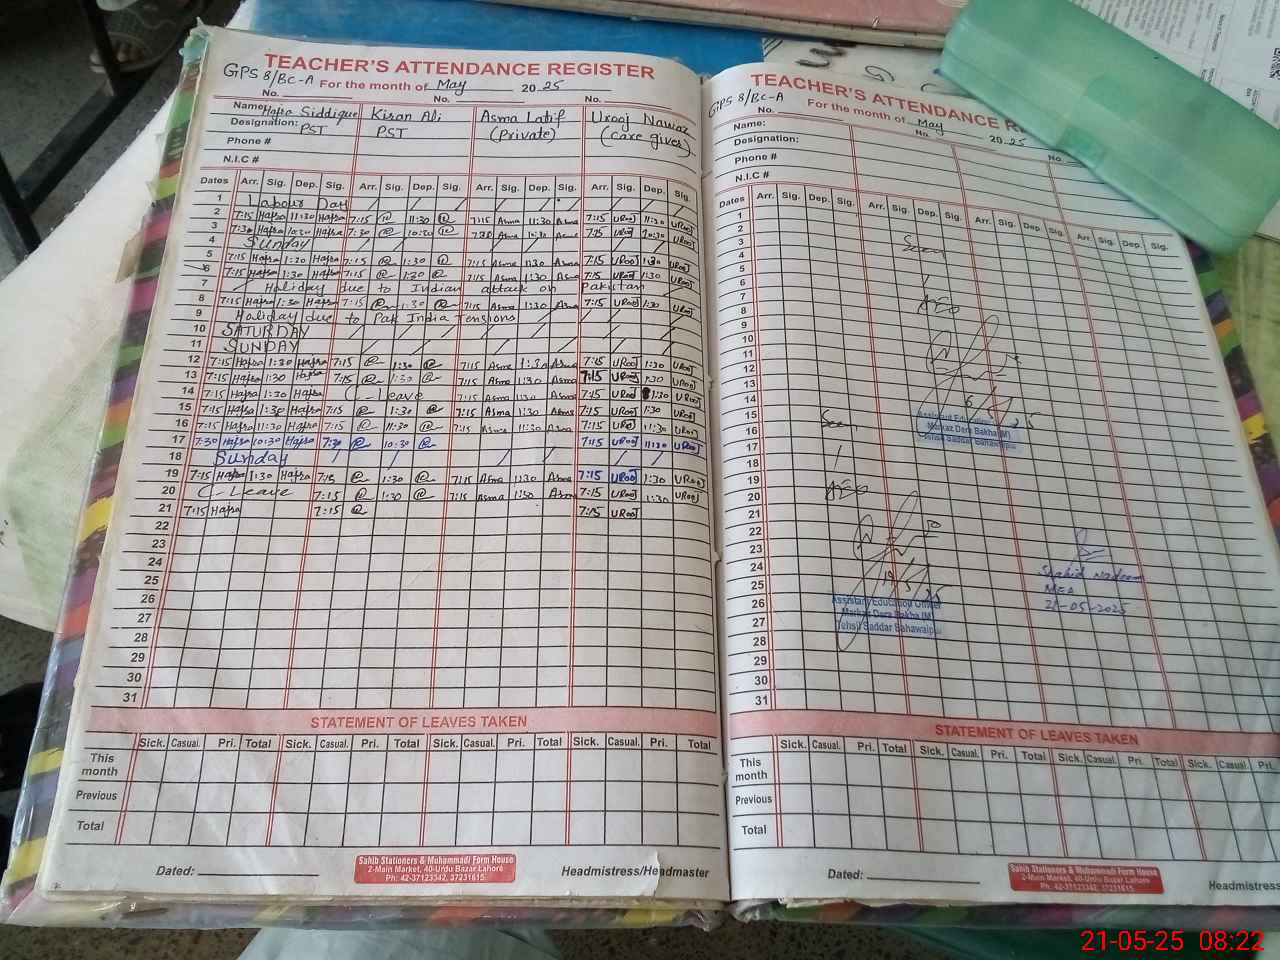 TEACHER'S ATTENDANCE REGISTER
GPS 8/BC-A
For the month of May 2025
No. No. No.
Name: Hafsa Siddique Kiran Ali Asma Latif Urooj Nawaz
Designation: PST PST (Private) (Care giver)
Phone #
N.I.C #
Dates Arr. Sig. Dep. Sig. Arr. Sig. Dep. Sig. Arr. Sig. Dep. Sig. Arr. Sig. Dep. Sig.
1 Labour Day
2 7:15 Hafsa 11:30 Hafsa 7:15 11:30 7:15 Asma 11:30 Asma 7:15 UROOJ 11:30 UROOJ
3 7:30 Hafsa 10:30 Hafsa 7:30 10:30 7:30 Asma 10:30 Asma 7:15 UROOJ 10:30 UROOJ
4 Sunday
5 7:15 Hafsa 1:30 Hafsa 7:15 1:30 7:15 Asma 1:30 Asma 7:15 UROOJ 1:30 UROOJ
6 7:15 Hafsa 1:30 Hafsa 7:15 1:30 7:15 Asma 1:30 Asma 7:15 UROOJ 1:30 UROOJ
7 Holiday due to Indian attack on Pakistan
8 7:15 Hafsa 1:30 Hafsa 7:15 1:30 7:15 Asma 1:30 Asma 7:15 UROOJ 1:30 UROOJ
9 Holiday due to Pak India Tensions
10 SATURDAY
11 SUNDAY
12 7:15 Hafsa 1:30 Hafsa 7:15 1:30 7:15 Asma 1:30 Asma 7:15 UROOJ 1:30 UROOJ
13 7:15 Hafsa 1:30 Hafsa 7:15 1:30 7:15 Asma 1:30 Asma 7:15 UROOJ 1:30 UROOJ
14 7:15 Hafsa 1:30 Hafsa C-Leave 7:15 Asma 1:30 Asma 7:15 UROOJ 1:30 UROOJ
15 7:15 Hafsa 1:30 Hafsa 7:15 1:30 7:15 Asma 1:30 Asma 7:15 UROOJ 1:30 UROOJ
16 7:15 Hafsa 11:30 Hafsa 7:15 11:30 7:15 Asma 11:30 Asma 7:15 UROOJ 11:30 UROOJ
17 7:30 Hafsa 10:30 Hafsa 7:30 10:30 7:15 UROOJ 11:30 UROOJ
18 Sunday
19 7:15 Hafsa 1:30 Hafsa 7:15 1:30 7:15 Asma 1:30 Asma 7:15 UROOJ 1:30 UROOJ
20 C-Leave 7:15 1:30 7:15 Asma 1:30 Asma 7:15 UROOJ 1:30 UROOJ
21 7:15 Hafsa 7:15 7:15 UROOJ
22
23
24
25
26
27
28
29
30
31
STATEMENT OF LEAVES TAKEN
Sick. Casual. Pri. Total Sick. Casual. Pri. Total Sick. Casual. Pri. Total Sick. Casual. Pri. Total
This month
Previous
Total
Dated:
Sahib Stationers & Muhammadi Form House
2-Main Market, 40-Urdu Bazar Lahore
Ph: 42-37123342, 37231615
Headmistress/Headmaster
TEACHER'S ATTENDANCE RE
GPS 8/BC-A
For the month of May 2025
No. No.
Name:
Designation:
Phone #
N.I.C #
Dates Arr. Sig. Dep. Sig. Arr. Sig. Dep. Sig. Arr. Sig. Dep. Sig. Arr. Sig. Dep. Sig.
1
2
3 Seen
4
5
6
7
8 AEO
9
10
11
12
13
14 6/5/25
15 Seen
Assistant Education
Markaz Dera Bakha (M)
Tehsil Saddar Bahawalpur
16
17
18
19
20 AEO
21
22
23
24 Shahid Nadeem
25 19/5/25 MEA
26 21-05-2025
Assistant Education Officer
Markaz Dera Bakha (M)
Tehsil Saddar Bahawalpur
27
28
29
30
31
STATEMENT OF LEAVES TAKEN
Sick. Casual. Pri. Total Sick. Casual. Pri. Total Sick. Casual. Pri. Total Sick. Casual. Pri.
This month
Previous
Total
Dated:
Sahib Stationers & Muhammadi Form House
2-Main Market, 40-Urdu Bazar Lahore
Ph: 42-37123342, 37231615
Headmistress
21-05-25 08:22